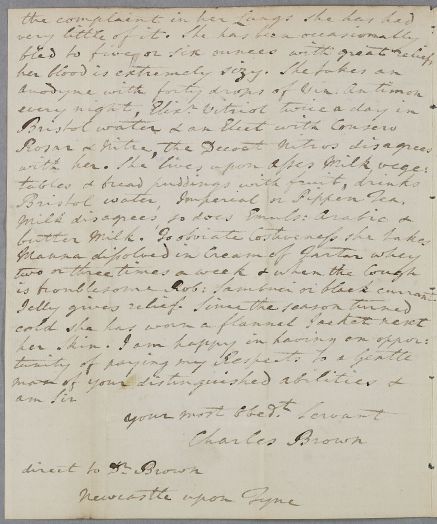 the complaint in her Lungs she has had
very little of it. She has been occasionally
bled to five or six ounces with great relief,
her blood is extremely sizy. She takes an
Anodyne with forty drops of Vin. Antimon
every night, Elix: Vitriol twice a day in
Bristol water & an Elect with Conserv
Rosar & Nitre, the Decoct Nitros disagrees
with her. She lives upon Asses Milk, vege:
tables & bread puddings with fruit, drinks
Bristol water, Imperial or Pippen Tea,
Milk disagrees so does Emuls: Arabic &
butter Milk. To obviate Costiveness she takes
Manna dissolved in Cream of Tartar whey
two or three times a week & when the Cough
is troublesome Rob: Sambuci or black currant
Jelly gives relief. Since the season turned
cold she has worn a flannel Jacket next
her Skin. I am happy in having an oppor:
tunity of paying my Respects to a Gentle
man of your distinguished abilities &
am Sir
your most Obedt. Servant
Charles Brown
direct to Dr. Brown
Newcastle upon Tyne